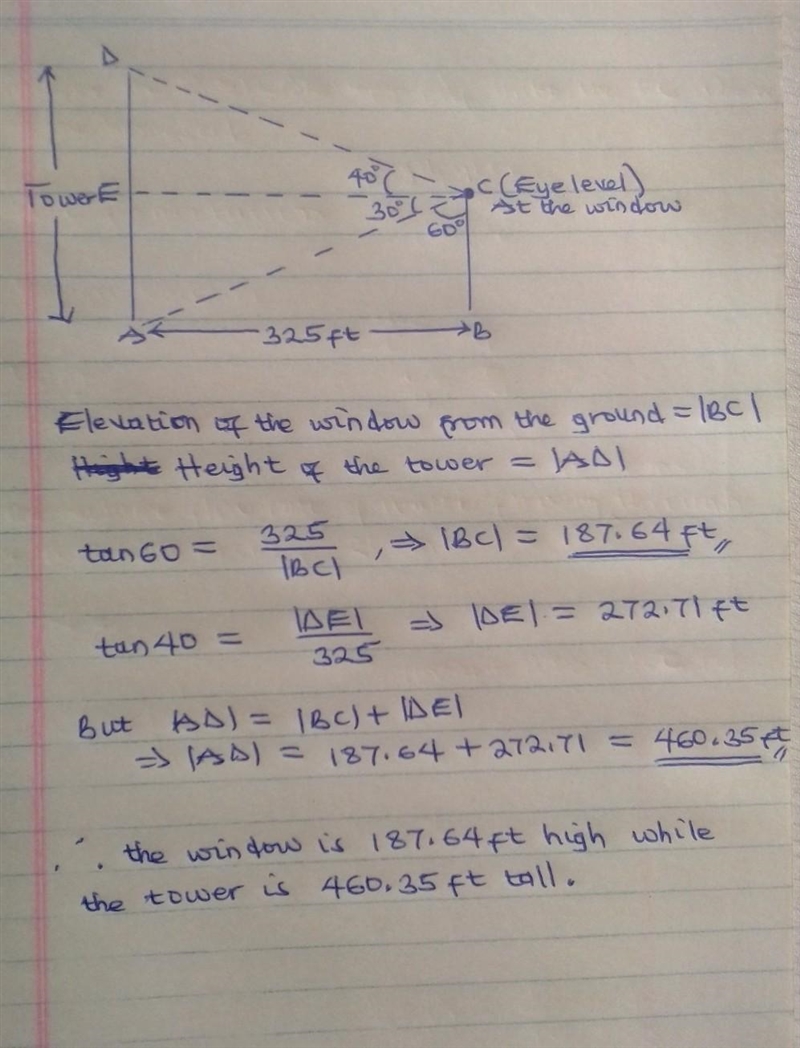 D
40°
Tower E
C (Eye level)
At the window
30°
60°
A
325ft
B
Elevation of the window from the ground = |BC|
Height of the tower = |AD|
tan60 = 325/|BC| , ⇒ |BC| = 187.64 ft
tan40 = |DE|/325 ⇒ |DE| = 272.71 ft
But |AD| = |BC| + |DE|
⇒ |AD| = 187.64 + 272.71 = 460.35 ft
∴ the window is 187.64ft high while
the tower is 460.35 ft tall.